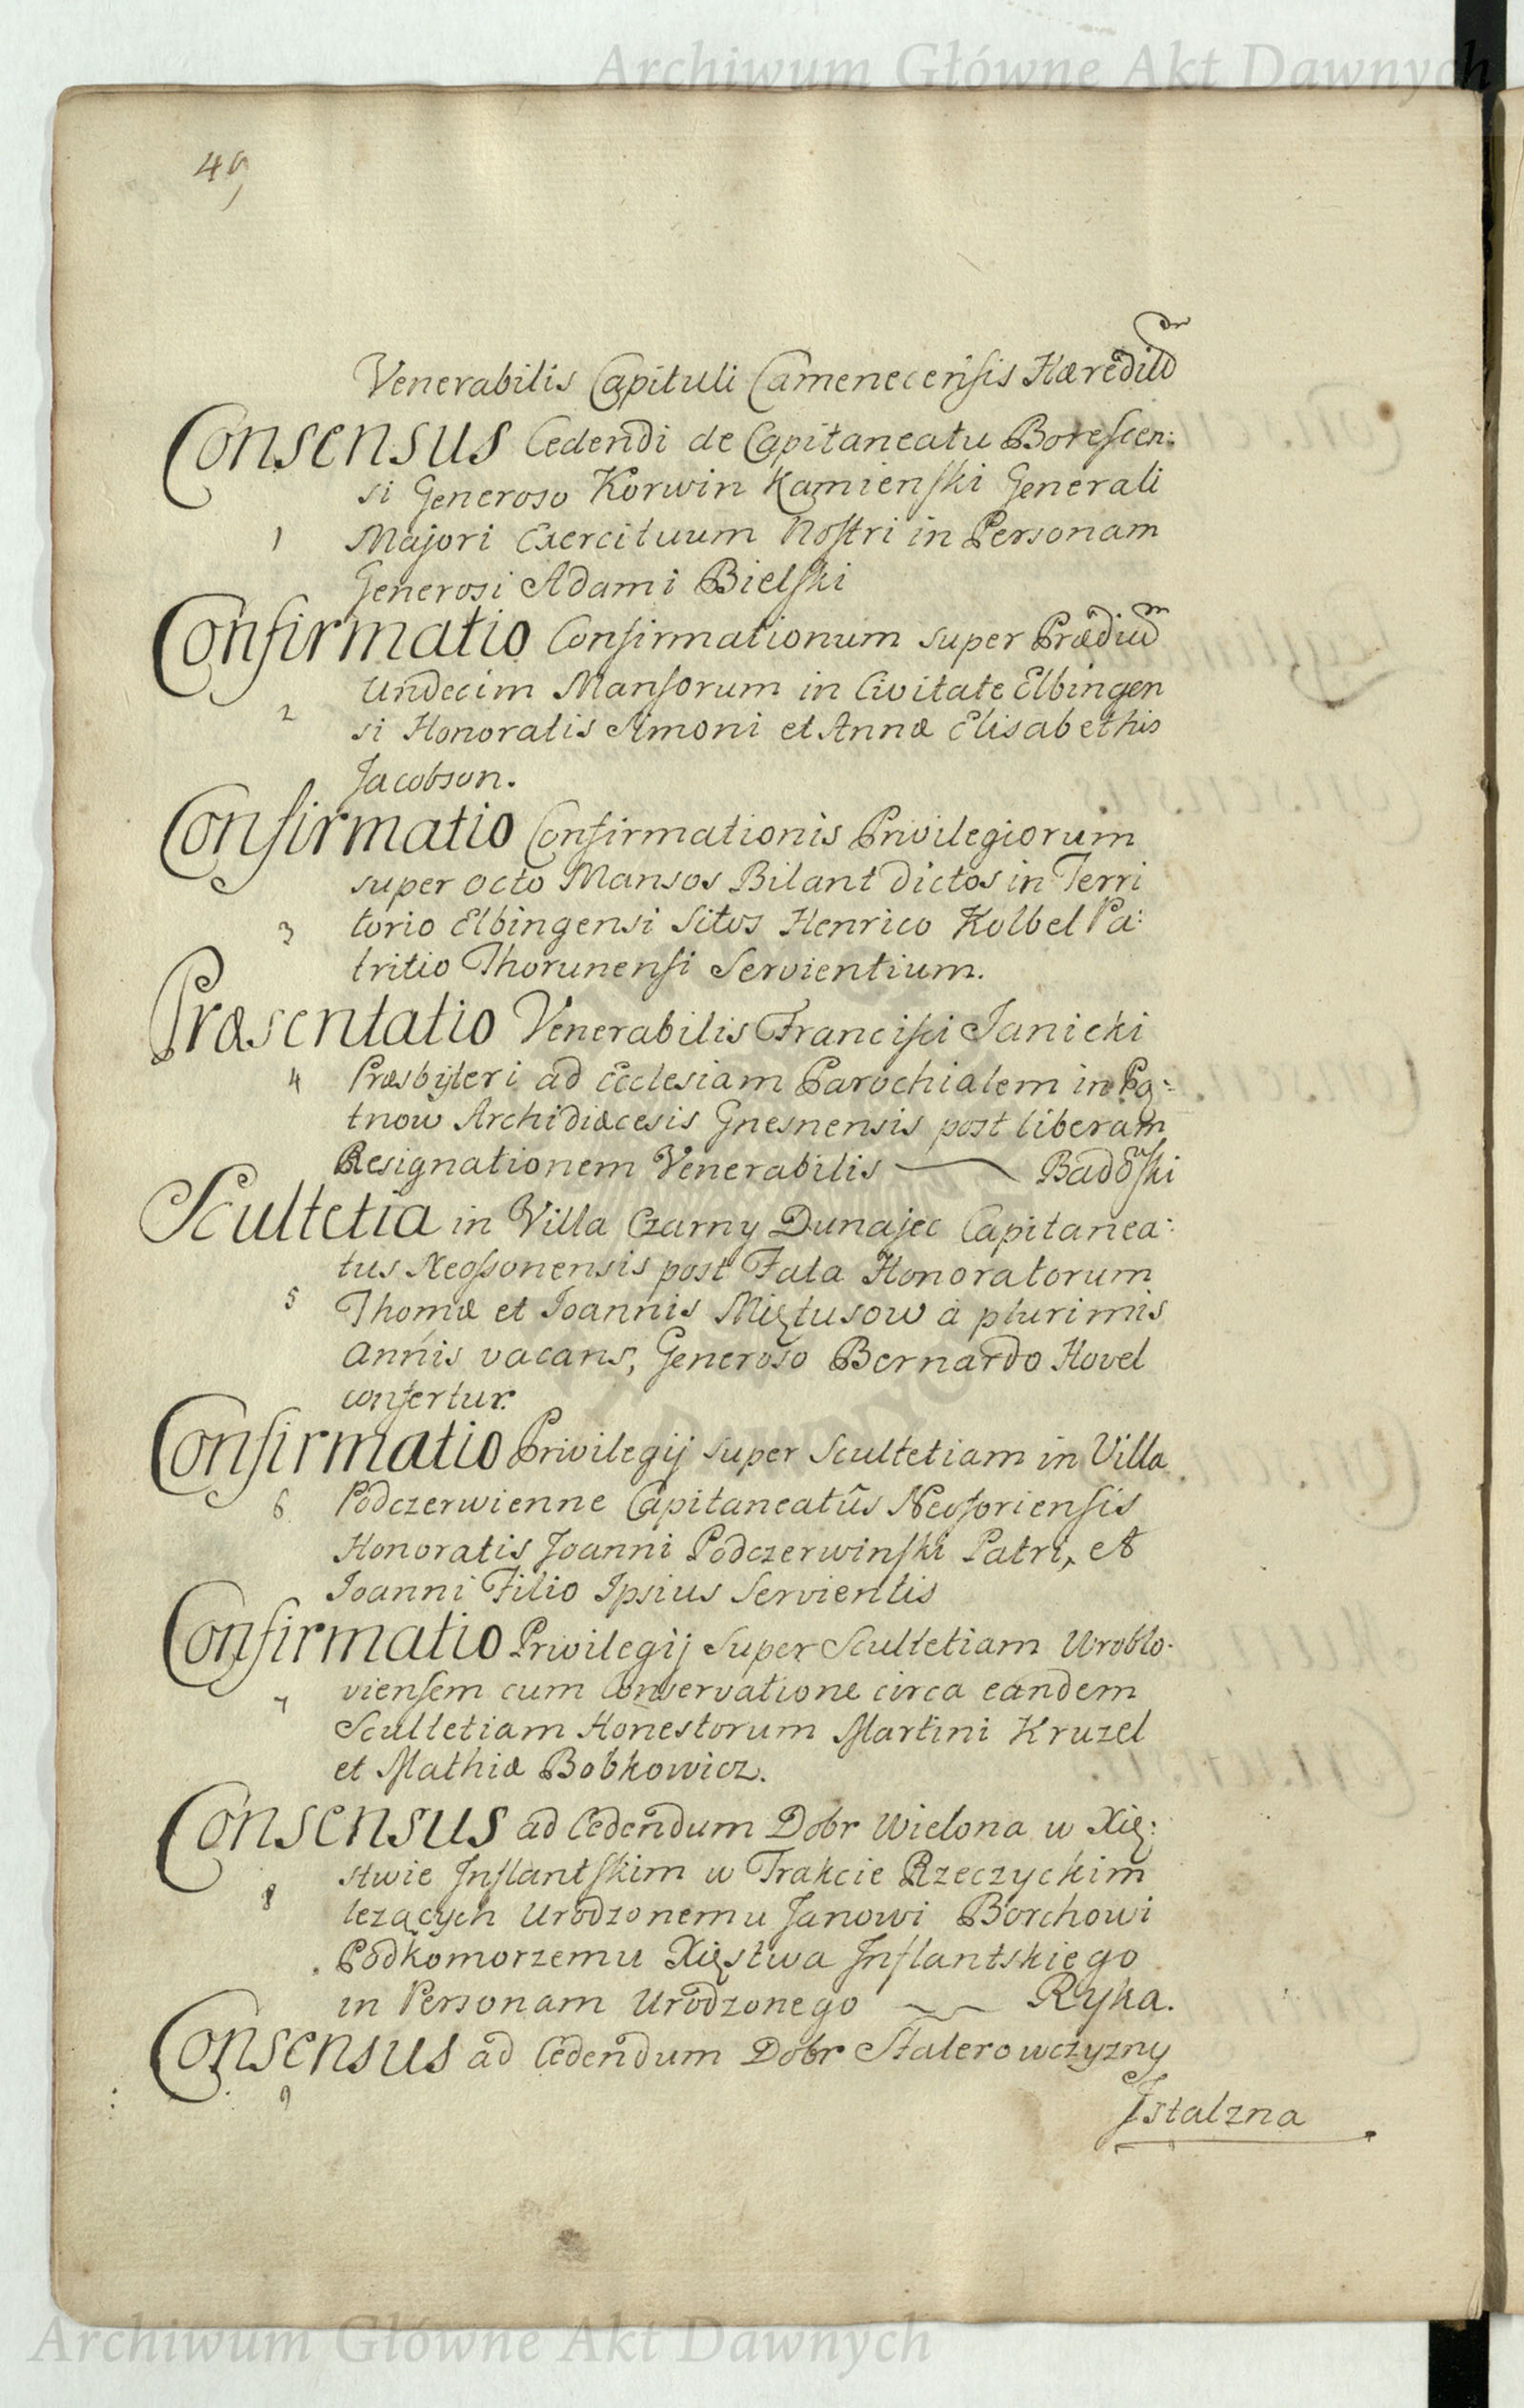 Archiwum Główne Akt Dawnych
49
Venerabilis Capituli Camenecensis Hæredit
Consensus Cedendi de Capitaneatu Borescen:
si Generoso Korwin Kamienski Generali
1 Majori Exercituum Nostri in Personam
Generosi Adami Bielski
Confirmatio Confirmationum super Prædiu
Undecim Mansorum in Civitate Elbingen
2 si Honoratis Simoni et Annæ Elisabethis
Jacobson.
Confirmatio Confirmationis Privilegiorum
super octo Mansos Bilant dictos in Terri
3 torio Elbingensi Sitos Henrico Kolbel Pa:
tritio Thorunensi Servientium.
Præsentatio Venerabilis Francisci Janicki
4 Præsbyteri ad Ecclesiam Parochialem in Pą:
tnow Archidiæcesis Gnesnensis post liberam
Resignationem Venerabilis — Badoski
Scultetia in Villa Czarny Dunajec Capitanea:
tus post Fata Honoratorum
5 Thomæ et Joannis Miętusow à plurimis
annis vacans, Generoso Bernardo Hovel
confertur.
Confirmatio Privilegij super Scultetiam in Villa
6 Podczerwienne Capitaneatûs
Honoratis Joanni Podczerwinski Patri, et
Joanni Filio Ipsius Servientis
Confirmatio Privilegij super Scultetiam Wroblo-
7 viensem cum Conservatione circa eandem
Scultetiam Honestorum Martini Kruzel
et Mathiæ Bobkowicz.
Consensus ad Cedendum Dobr Wielona w Xię:
stwie Inflantskim w Trakcie Rzeczyckim
8 lezących Urodzonemu Janowi Borchowi
Podkomorzemu Xięstwa Inflantskiego
in Personam Urodzonego ~~ Ryka.
Consensus ad Cedendum Dobr Stalerowczyzny
9
Istalzna
Archiwum Główne Akt Dawnych